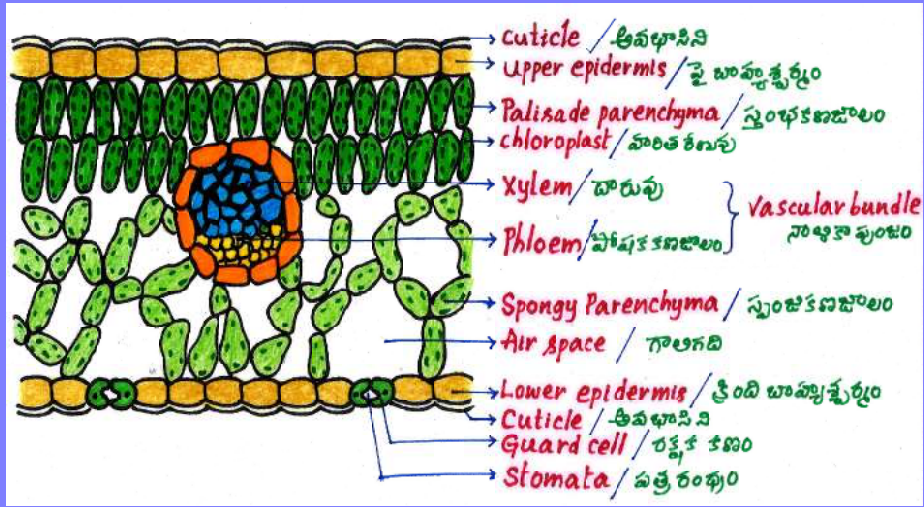 cuticle / అవభాసిని
Upper epidermis / పై బాహ్యశ్చర్మం
Palisade parenchyma / స్తంభకణజాలం
chloroplast / హరితరేణువు
Xylem / దారువు
Vascular bundle
నాళికాపుంజం
Phloem / పోషకకణజాలం
Spongy Parenchyma / స్పంజికణజాలం
Air space / గాలిగది
Lower epidermis / క్రింది బాహ్యశ్చర్మం
Cuticle / అవభాసిని
Guard cell / రక్షక కణం
Stomata / పత్రరంధ్రం